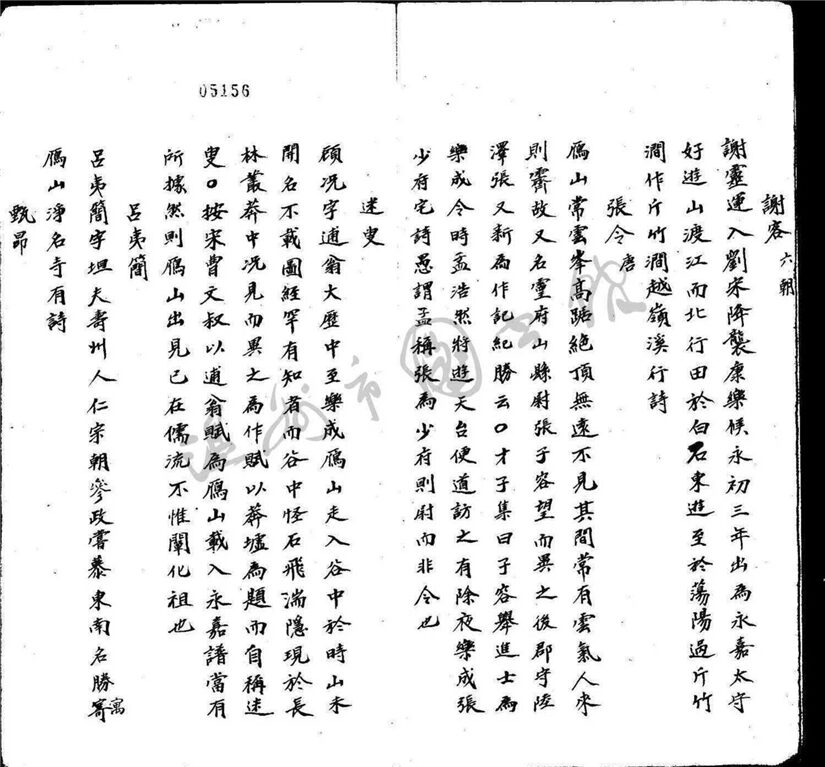 05156
謝客 六朝
謝靈運入劉宋降襲康樂候永初三年出為永嘉太守
好遊山渡江而北行田於白石東遊至於蕩陽過斤竹
澗作斤竹澗越嶺溪行詩
張令 唐
鴈山常雲峯高踞絕頂無遠不見其間常有雲氣人來
則霽故又名靈府山縣尉張子容望而異之後郡守陸
澤張又新為作記紀勝云〇才子集曰子容舉進士為
樂成令時孟浩然將遊天台便道訪之有除夜樂成張
少府宅詩愚謂孟稱張為少府則尉而非令也
迷叟
顧况字逋翁大歷中至樂成鴈山走入谷中於時山未
開名不載圖經罕有知者而谷中怪石飛湍隱現於長
林叢莽中况見而異之為作賦以莽墟為題而自稱迷
叟〇按宋曹文叔以逋翁賦為鴈山載入永嘉譜當有
所據然則鴈山出見已在儒流不惟闡化祖也
呂夷簡
呂夷簡字坦夫壽州人仁宗朝參政嘗慕東南名勝寄寓
鴈山淨名寺有詩
甄昂
溫州市圖書館